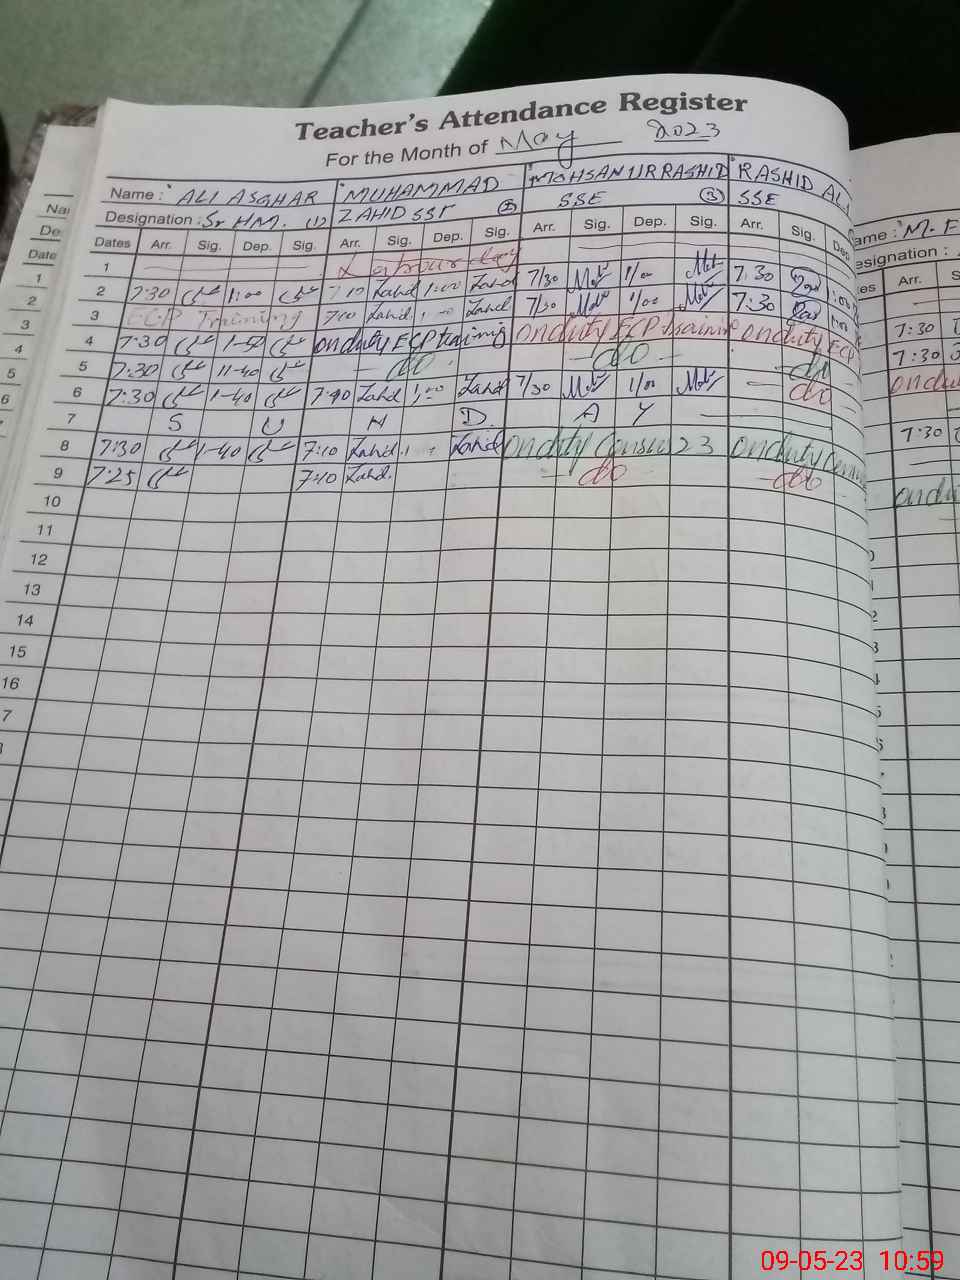 Teacher's Attendance Register
For the Month of May 2023
Name : ALI ASGHAR MUHAMMAD MOHSAN UR RASHID RASHID ALI
Designation : Sr HM. (1) ZAHID SST (2) SSE (3) SSE
Dates Arr. Sig. Dep. Sig. Arr. Sig. Dep. Sig. Arr. Sig. Dep. Sig. Arr. Sig. Dep.
1 Labour day
2 7:30 1:00 7:10 Zahid 1:00 Zahid 7/30 1/00 7:30 1:00
3 ECP Training 7:10 Zahid Zahid 7/30 1/00 7:30
4 7:30 1-50 on duty ECP training on duty ECP training on duty ECP
5 7:30 11-40 - do - - do - - do
6 7:30 1-40 7:40 Zahid 1:00 Zahid 7/30 1/00 - do
7 S U N D A Y
8 7:30 1-40 7:10 Zahid Zahid on duty Census 23 on duty
9 7:25 7:10 Zahid. - do - do
10
11
12
13
14
15
16
Nai
De
Date
1
2
3
4
5
6
7
ame : M. F
esignation :
es Arr. S
7:30
7:30
on du
7:30
on du
09-05-23 10:59